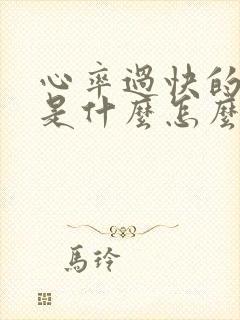 心率過快的
是什麼怎麼
馬玲